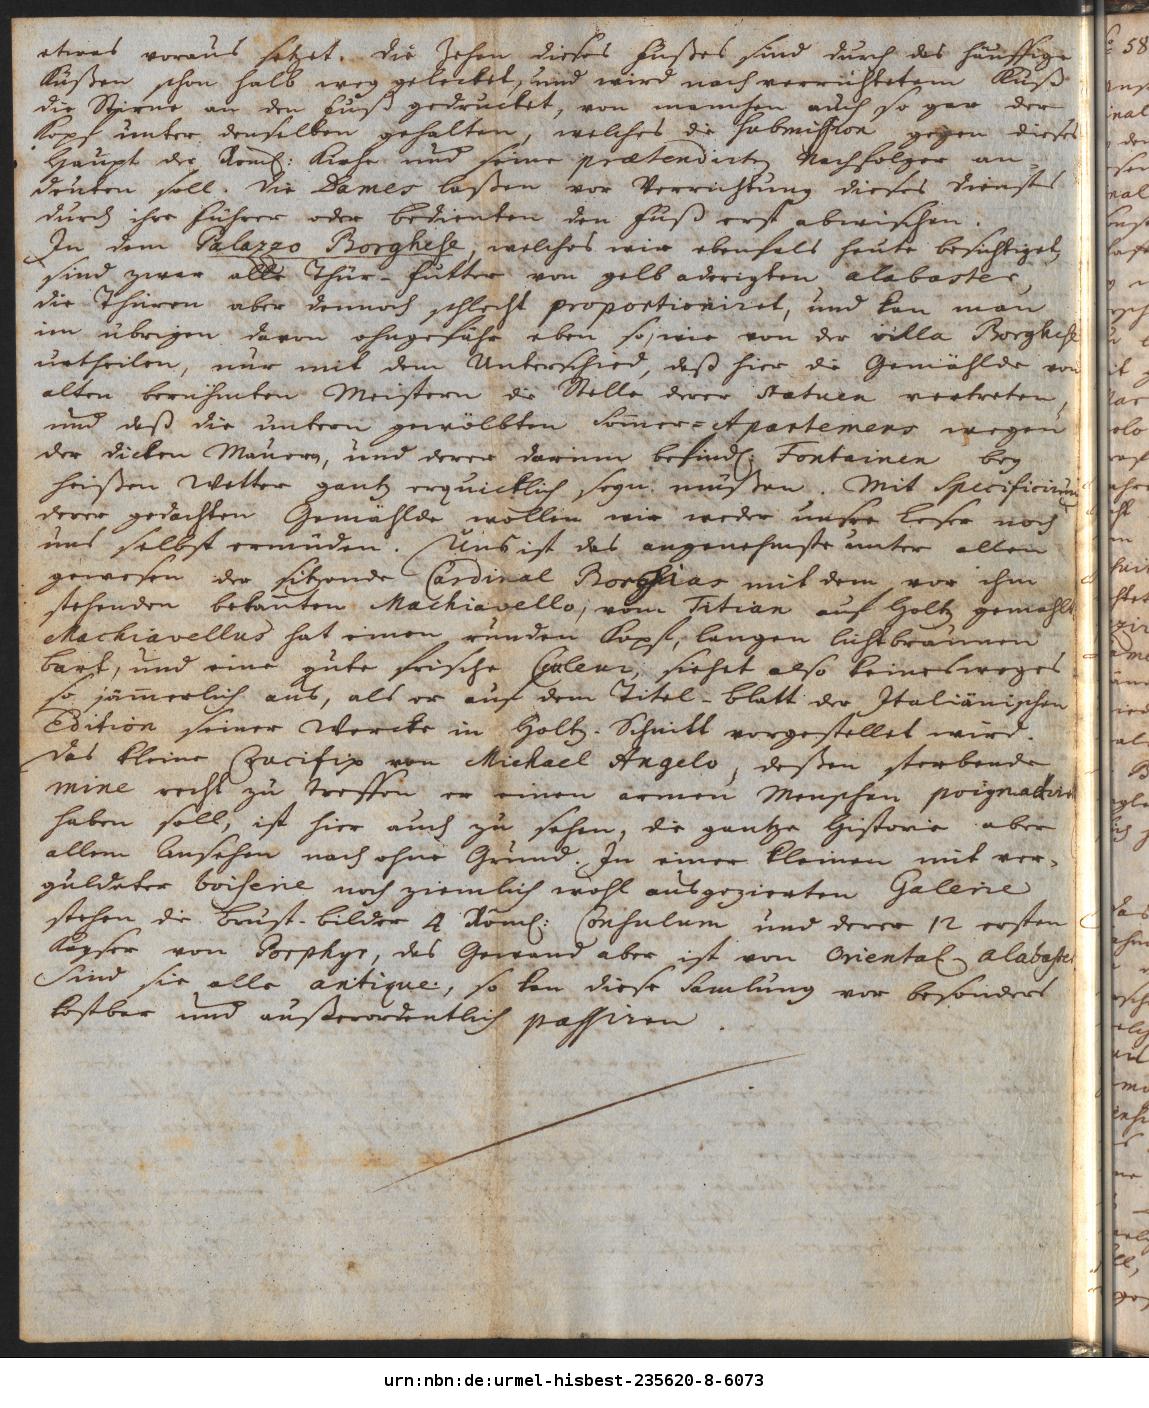 etwas voraus setzet. die Zehen dieses Fußes sind durch das häuffige
Küßen schon halb weg geleckt, und wird nach verrichtetem Kuß
die Stirne an den Fuß gedrucket, von manchen auch so gar der
Kopf unter denselben gehalten, welches die Submission gegen dieses
Haupt der Röml: Kirche und seine prætendirte Nachfolger an-
deuten soll. Die Dames laßen vor Verrichtung dieses Dienstes
durch ihre Führer oder Bedienten den Fuß erst abwischen.
In dem Palazzo Borghese, welches wir ebenfals heute besichtiget,
sind zwar alle Thür-Futter von gelb aderigten alabaster,
die Thüren aber dennoch schlecht proportioniret, und kan man
im übrigen davon ohngefähr eben so, wie von der villa Borghese
urtheilen, nur mit dem Unterschied, daß hier die Gemählde von
alten berühmten Meistern die Stelle derer Statuen vertreten,
und daß die untern gewölbten Somer=Apartemens wegen
der dicken Mauern, und derer darinn befindl: Fontainen bey
heißen Wetter gantz erquicklich seyn müßen. Mit Specificirung
derer gedachten Gemählde wollen wir weder unsre Leser noch
uns selbst ermüden. Uns ist das angenehmste unter allen
gewesen der sitzende Cardinal Borghias mit dem vor ihm
stehenden bekanten Machiavello, vom Titian auf Holtz gemahlt.
Machiavellus hat einen runden Kopf, langen lichtbraunen
bart, und eine gute frische Couleur, siehet also keinesweges
so jämmerlich aus, als er auf dem Titel-blatt der Italiänischen
Edition seiner Wercke in Holtz-Schnitt vorgestellet wird.
Das kleine Crucifix von Michael Angelo, deßen sterbende
mine recht zu treffen er einen armen Menschen poignardirt
haben soll, ist hier auch zu sehen, die gantze Historie aber
allem Ansehen nach ohne Grund. In einer kleinen mit ver-
guldeter boiserie noch ziemlich wohl ausgezierten Galerie
stehen die brust-bilder 4 Röml: Consulum und derer 12 ersten
Kayser von Porphyr, das Gewand aber ist von Oriental. alabaster.
Sind sie alle antique, so kan diese Samlung vor besonders
kostbar und außerordentlich passiren.
urn:nbn:de:urmel-hisbest-235620-8-6073